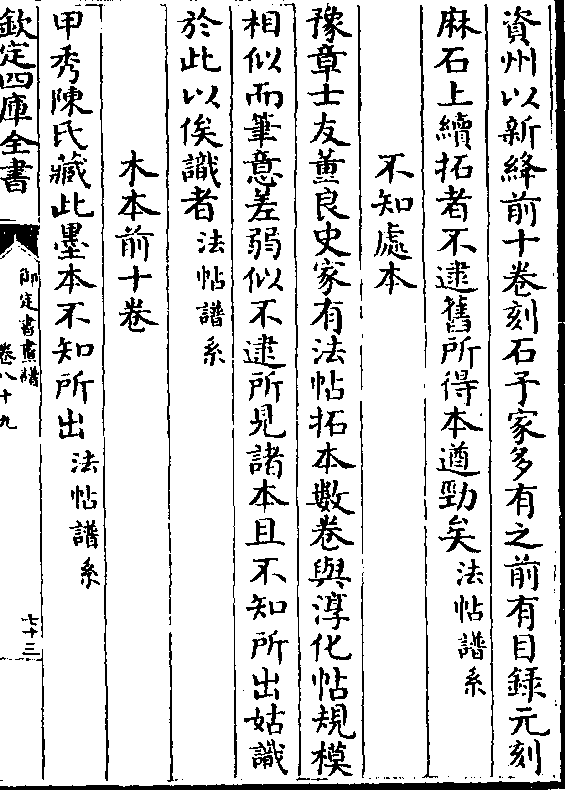 資州以新絳前十卷刻石予家多有之前有目錄元刻
麻石上續拓者不逮舊所得本遒勁矣法帖譜系
不知處本
豫章士友董良史家有法帖拓本數卷與淳化帖規模
相似而筆意差弱似不逮所見諸本且不知所出姑識
於此以俟識者法帖譜系
木本前十卷
甲秀陳氏藏此墨本不知所出法帖譜系
欽定四庫全書
御定書畫譜
卷八十九
七十三